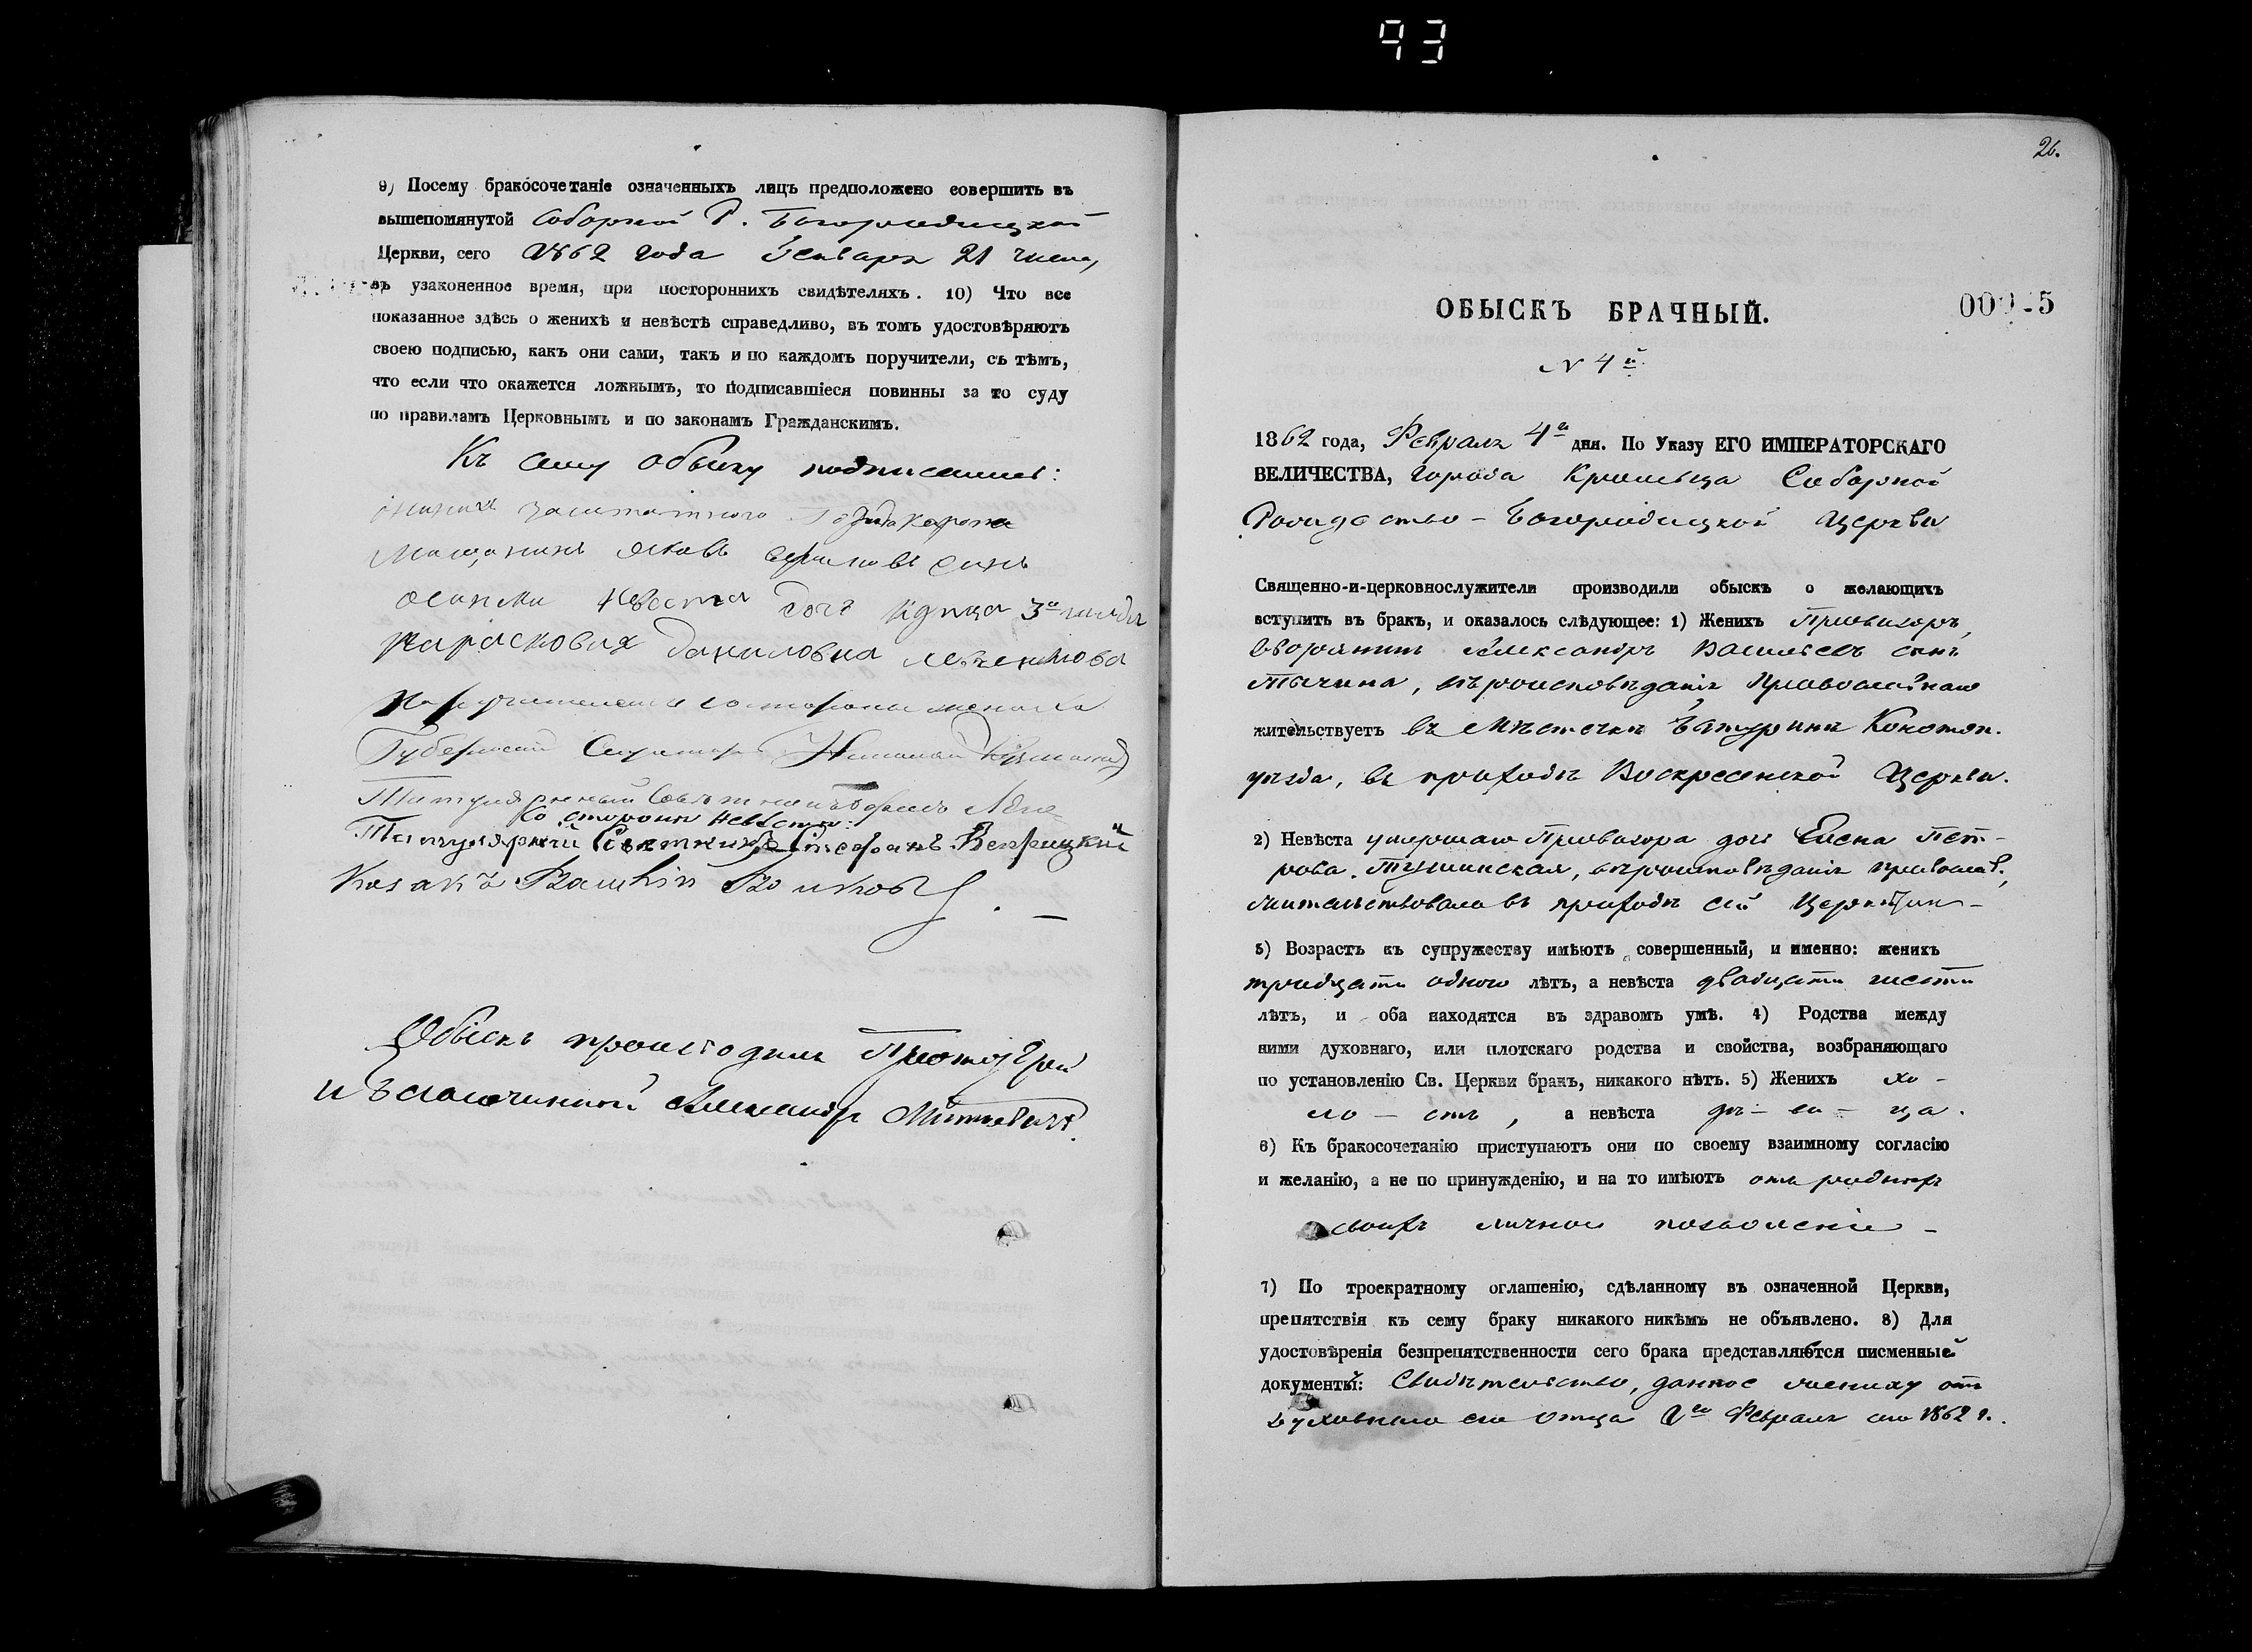 93
9) Посему бракосочетаніе означенныхъ лицъ предположено совершить въ
вышепомянутой Соборной Р. Богородицкой
Церкви, сего 1862 года Января 21 числа,
въ узаконенное время, при постороннихъ свидѣтеляхъ. 10) Что все
показанное здѣсь о женихѣ и невѣстѣ справедливо, въ томъ удостовѣряютъ
своею подписью, какъ они сами, такъ и по каждомъ поручители, съ тѣмъ,
что если что окажется ложнымъ, то подписавшіеся повинны за то суду
по правиламъ Церковнымъ и по законамъ Гражданскимъ.
Къ сему обыску подписались:
женихъ заштатного города Коропа
мещанинъ Яковъ сынъ
невеста дочь купца 3й гильдіи
Парасковия Даниловна
Поручители со стороны жениха
Губернский Секретарь Николай
Титулярный Советникъ
Со стороны невесты:
Титулярный Советникъ Стефанъ
Козакъ
Обыскъ производилъ Протоіерей
и Благочинный Александръ
26.
ОБЫСКЪ БРАЧНЫЙ.
N 4й
1862 года, Февраля 4го дня. По Указу ЕГО ИМПЕРАТОРСКАГО
ВЕЛИЧЕСТВА, города Кролевца Соборной
Рождество-Богородицкой Церкви
Священно-и-церковнослужители производили обыскъ о желающихъ
вступить въ бракъ, и оказалось слѣдующее: 1) Женихъ Провизоръ,
дворянинъ Александръ Васильевъ сынъ
Тычина, вѣроисповѣданія Православнаго
жительствуетъ въ мѣстечкѣ Батуринѣ Конотоп.
уѣзда, въ приходѣ Воскресенской Церкви.
2) Невѣста умершаго Провизора дочь Елена Пет-
рова, вѣроисповѣданія православ.,
жительствовала въ приходѣ сей Церкви
3) Возрастъ къ супружеству имѣютъ совершенный, и именно: женихъ
тридцати одного лѣтъ, а невѣста двадцати шести
лѣтъ, и оба находятся въ здравомъ умѣ. 4) Родства между
ними духовнаго, или плотскаго родства и свойства, возбраняющаго
по установленію Св. Церкви бракъ, никакого нѣтъ. 5) Женихъ хо-
ло-стъ, а невѣста дѣ-ви-ца.
6) Къ бракосочетанію приступаютъ они по своему взаимному согласію
и желанію, а не по принужденію, и на то имѣютъ отъ родныхъ
своихъ личное позволеніе -
7) По троекратному оглашенію, сдѣланному въ означенной Церкви,
препятствія къ сему браку никакого никѣмъ не объявлено. 8) Для
удостовѣренія безпрепятственности сего брака представляются писменные
документы: Свидѣтельство, данное жениху отъ
духовнаго его отца Февраля сего 1862 г.